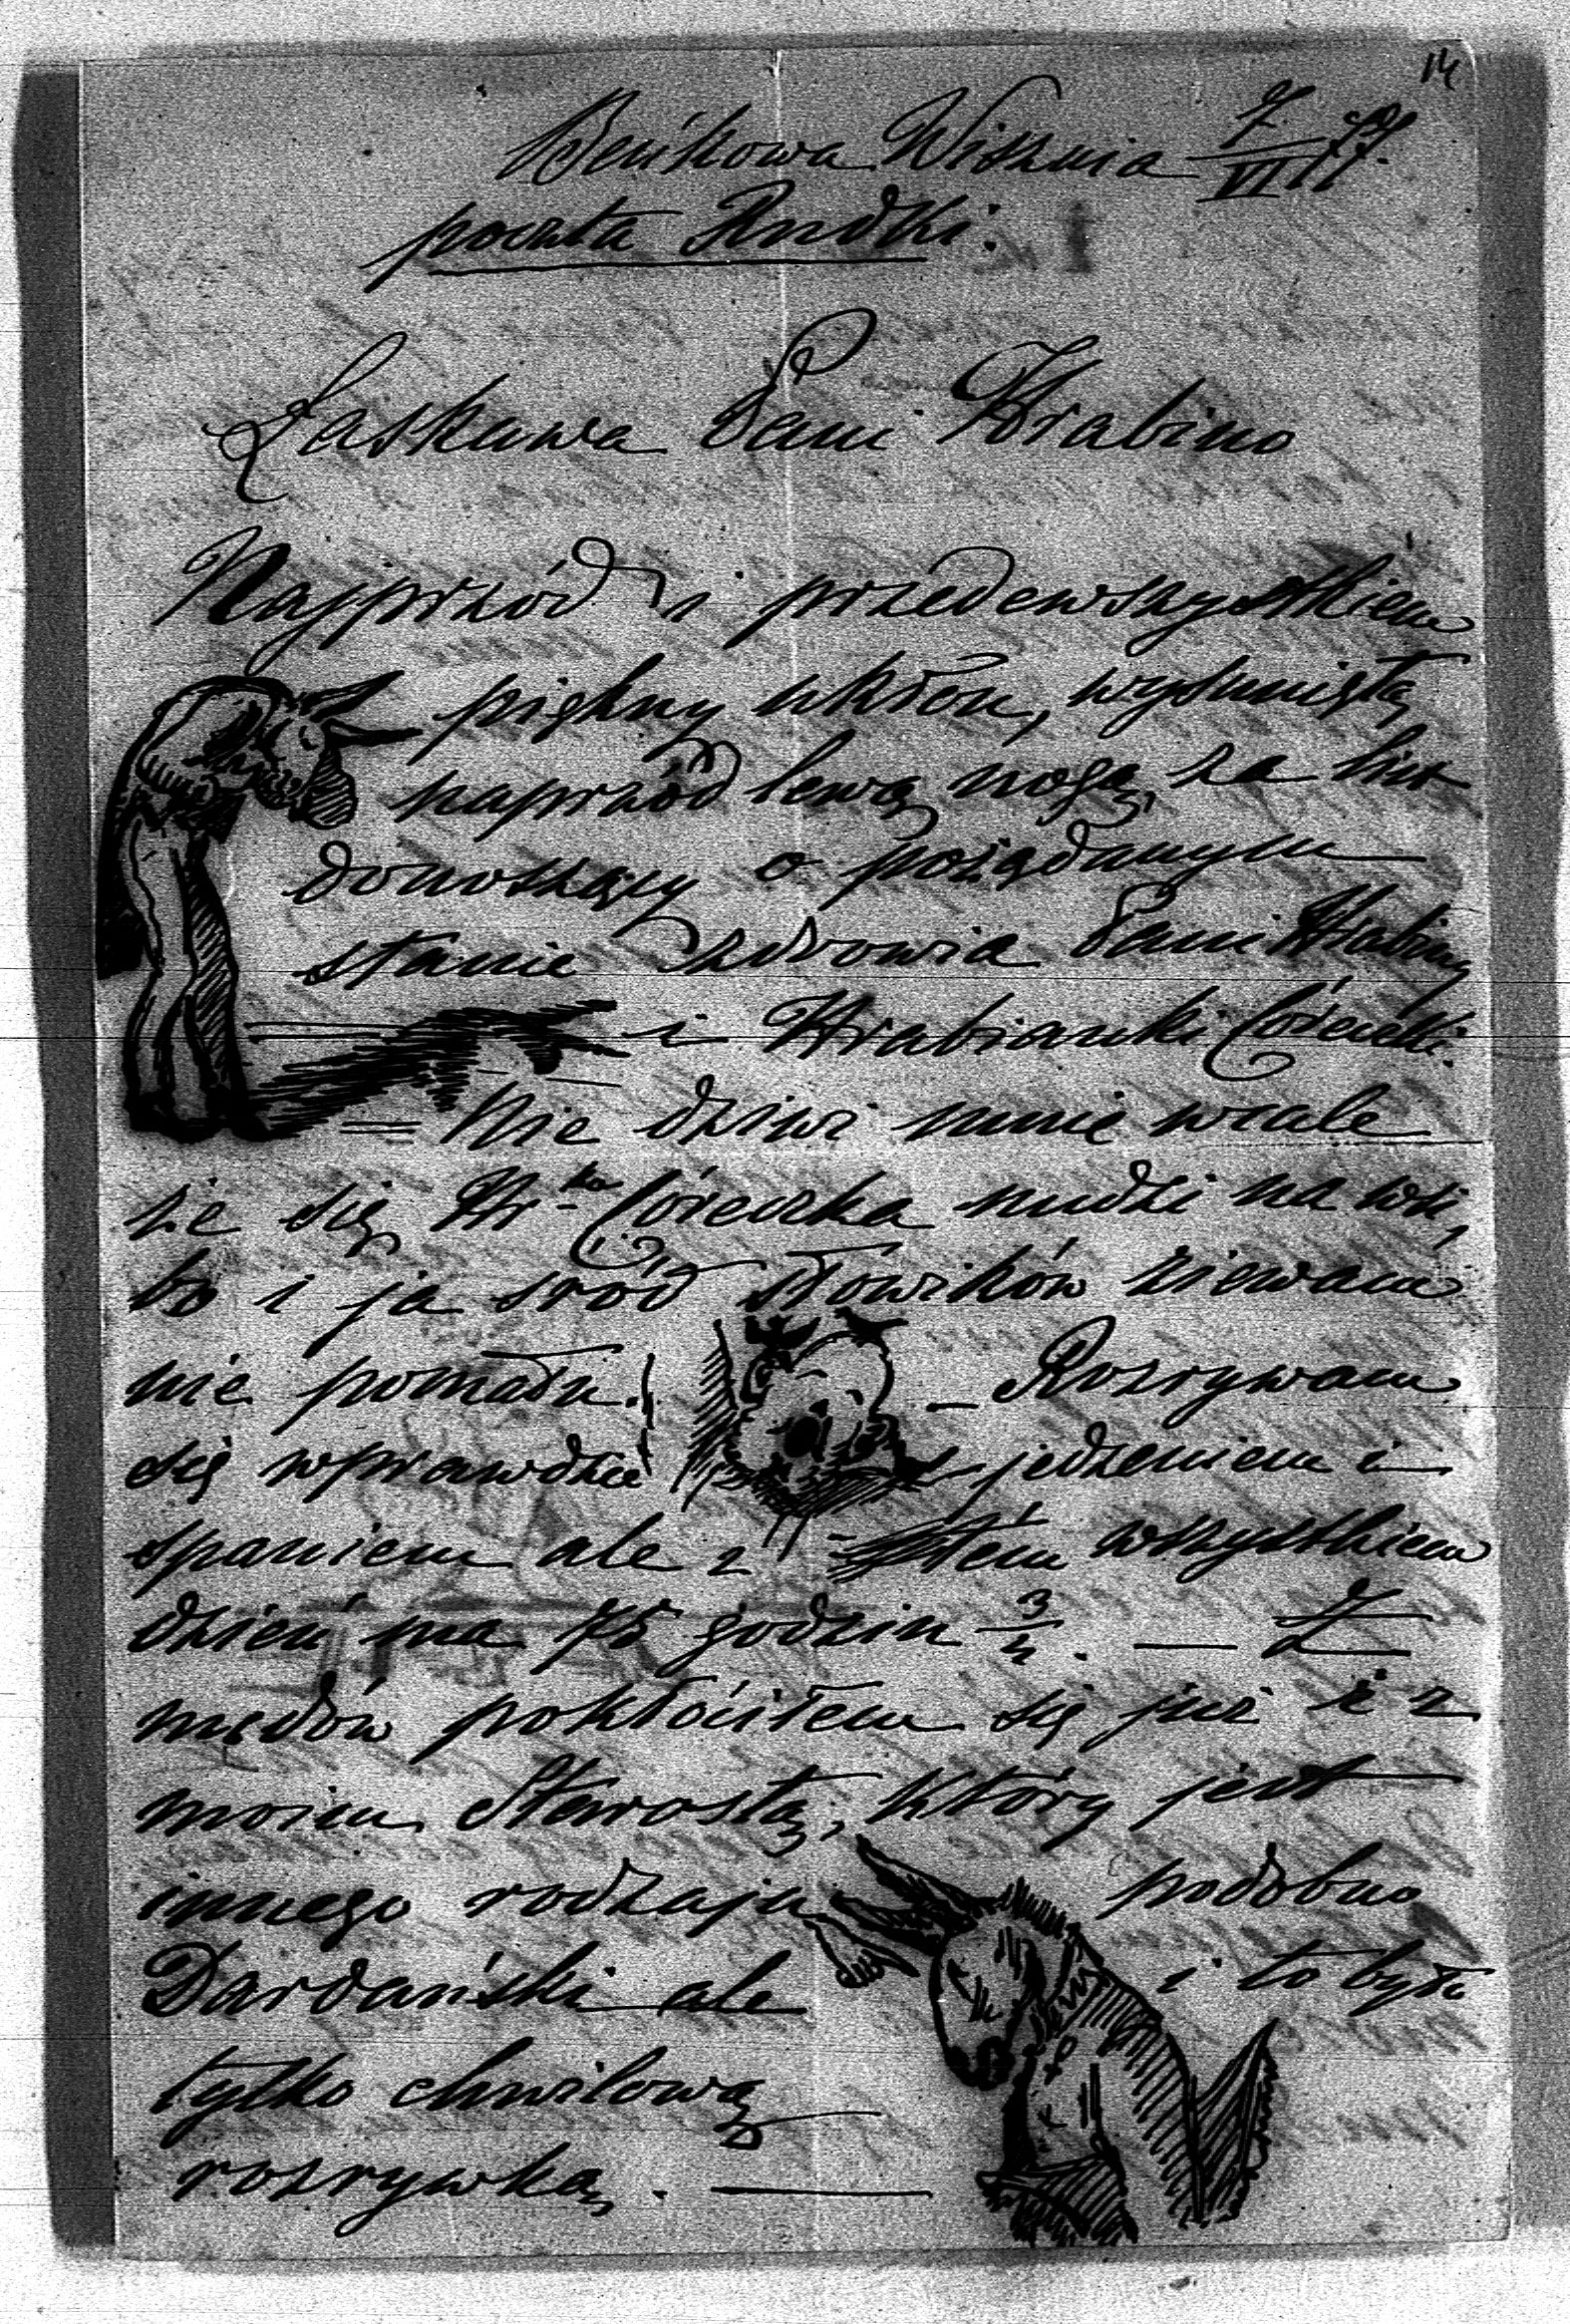 14
Beńkowa Wisznia 7/VII 77.
poczta Rudki.
Łaskawa Pani Hrabino
Najprzód i przedewszystkiem
piękny ukłon, wysuniętą
naprzód lewą nogą, za list
donoszący o pożądanym
stanie zdrowia Pani Hrabiny
i Hrabianki Córeczki.
= Nie dziwi mnie wcale
że się Hr-ka Córeczka nudzi na wsi,
bo i ja sród słowików ziewam
nie pomału. — Rozrywam
się wprawdzie jedzeniem i
spaniem ale z tém wszystkiem
dzień ma 75 godzin 3/4. — Z
nudów pokłóciłem się już i z
moim Starostą, który jest
innego rodzaju podobno
Dardański ale i to było
tylko chwilową
rozrywką. —